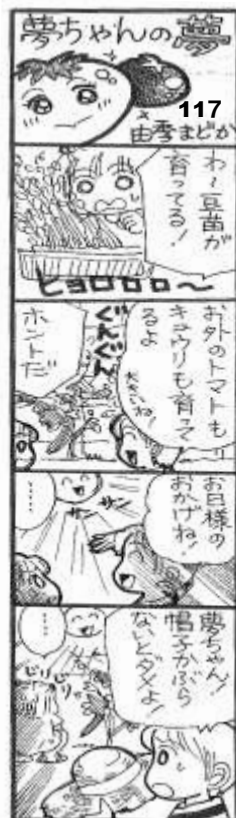 夢ちゃんの夢
117
由季まどか
わ〜豆苗が
育ってる!
ヒョロロロ〜
お外のトマトも
キュウリも育って
るよ
大きいね!
ぐんぐん
ホントだ
お日様の
おかげね!
サンサン
……
夢ちゃん!
帽子かぶら
ないとダメよ!
……
じりじり